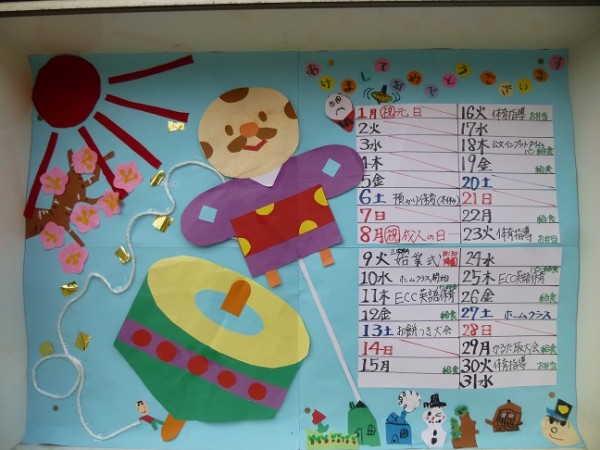 あけましておめでとうございます
1月 ㊗元日
2火
3水
4木
5金
6土 預かり保育
7日
8月 ㊗成人の日
9火 始業式
10水 ホームクラス開始
11木 ECC英語保育
12金 給食
13土 お餅つき大会
14日
15月 給食
16火 体育指導 お弁当
17水
18木 給食
19金 給食
20土
21日
22月 給食
23火 体育指導 お弁当
24水
25木 ECC英語保育
26金 給食
27土 ホームクラス
28日
29月 かるた取大会 給食
30火 体育指導 お弁当
31水